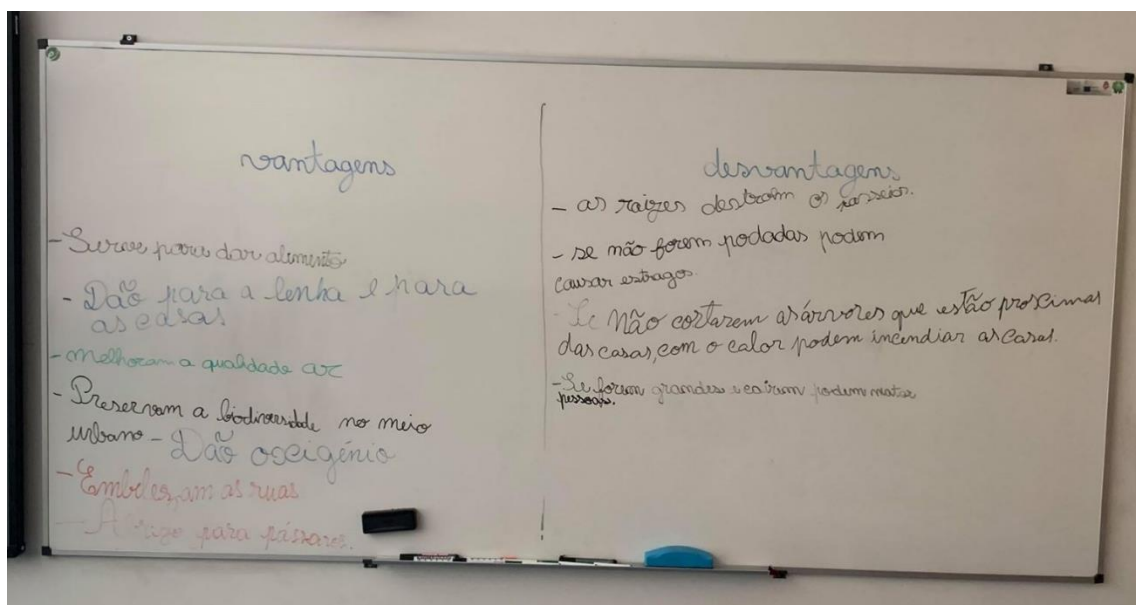 vantagens
- Surve para dar alimento
- Dão para a lenha e para
as casas
- melhoram a qualidade ar
- Preservam a biodiversidade no meio
urbano - Dão oxcigénio
- Embelezam as ruas
- Abrigo para pássaros.
desvantagens
- as raizes destroim os passeios.
- se não forem podadas podem
causar estragos.
- Se Não cortarem as árvores que estão proscimas
das casas, com o calor podem incendiar as casas.
- Se forem grandes e cairem podem matar
pessoas.